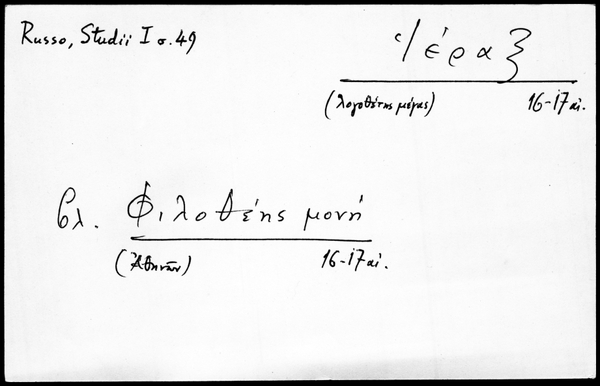 Russo, Studii I σ. 49
Ἱέραξ
(λογοθέτης μέγας) 16-17 αἰ.
βλ. Φιλοθέης μονή
(Ἀθηνῶν) 16-17 αἰ.